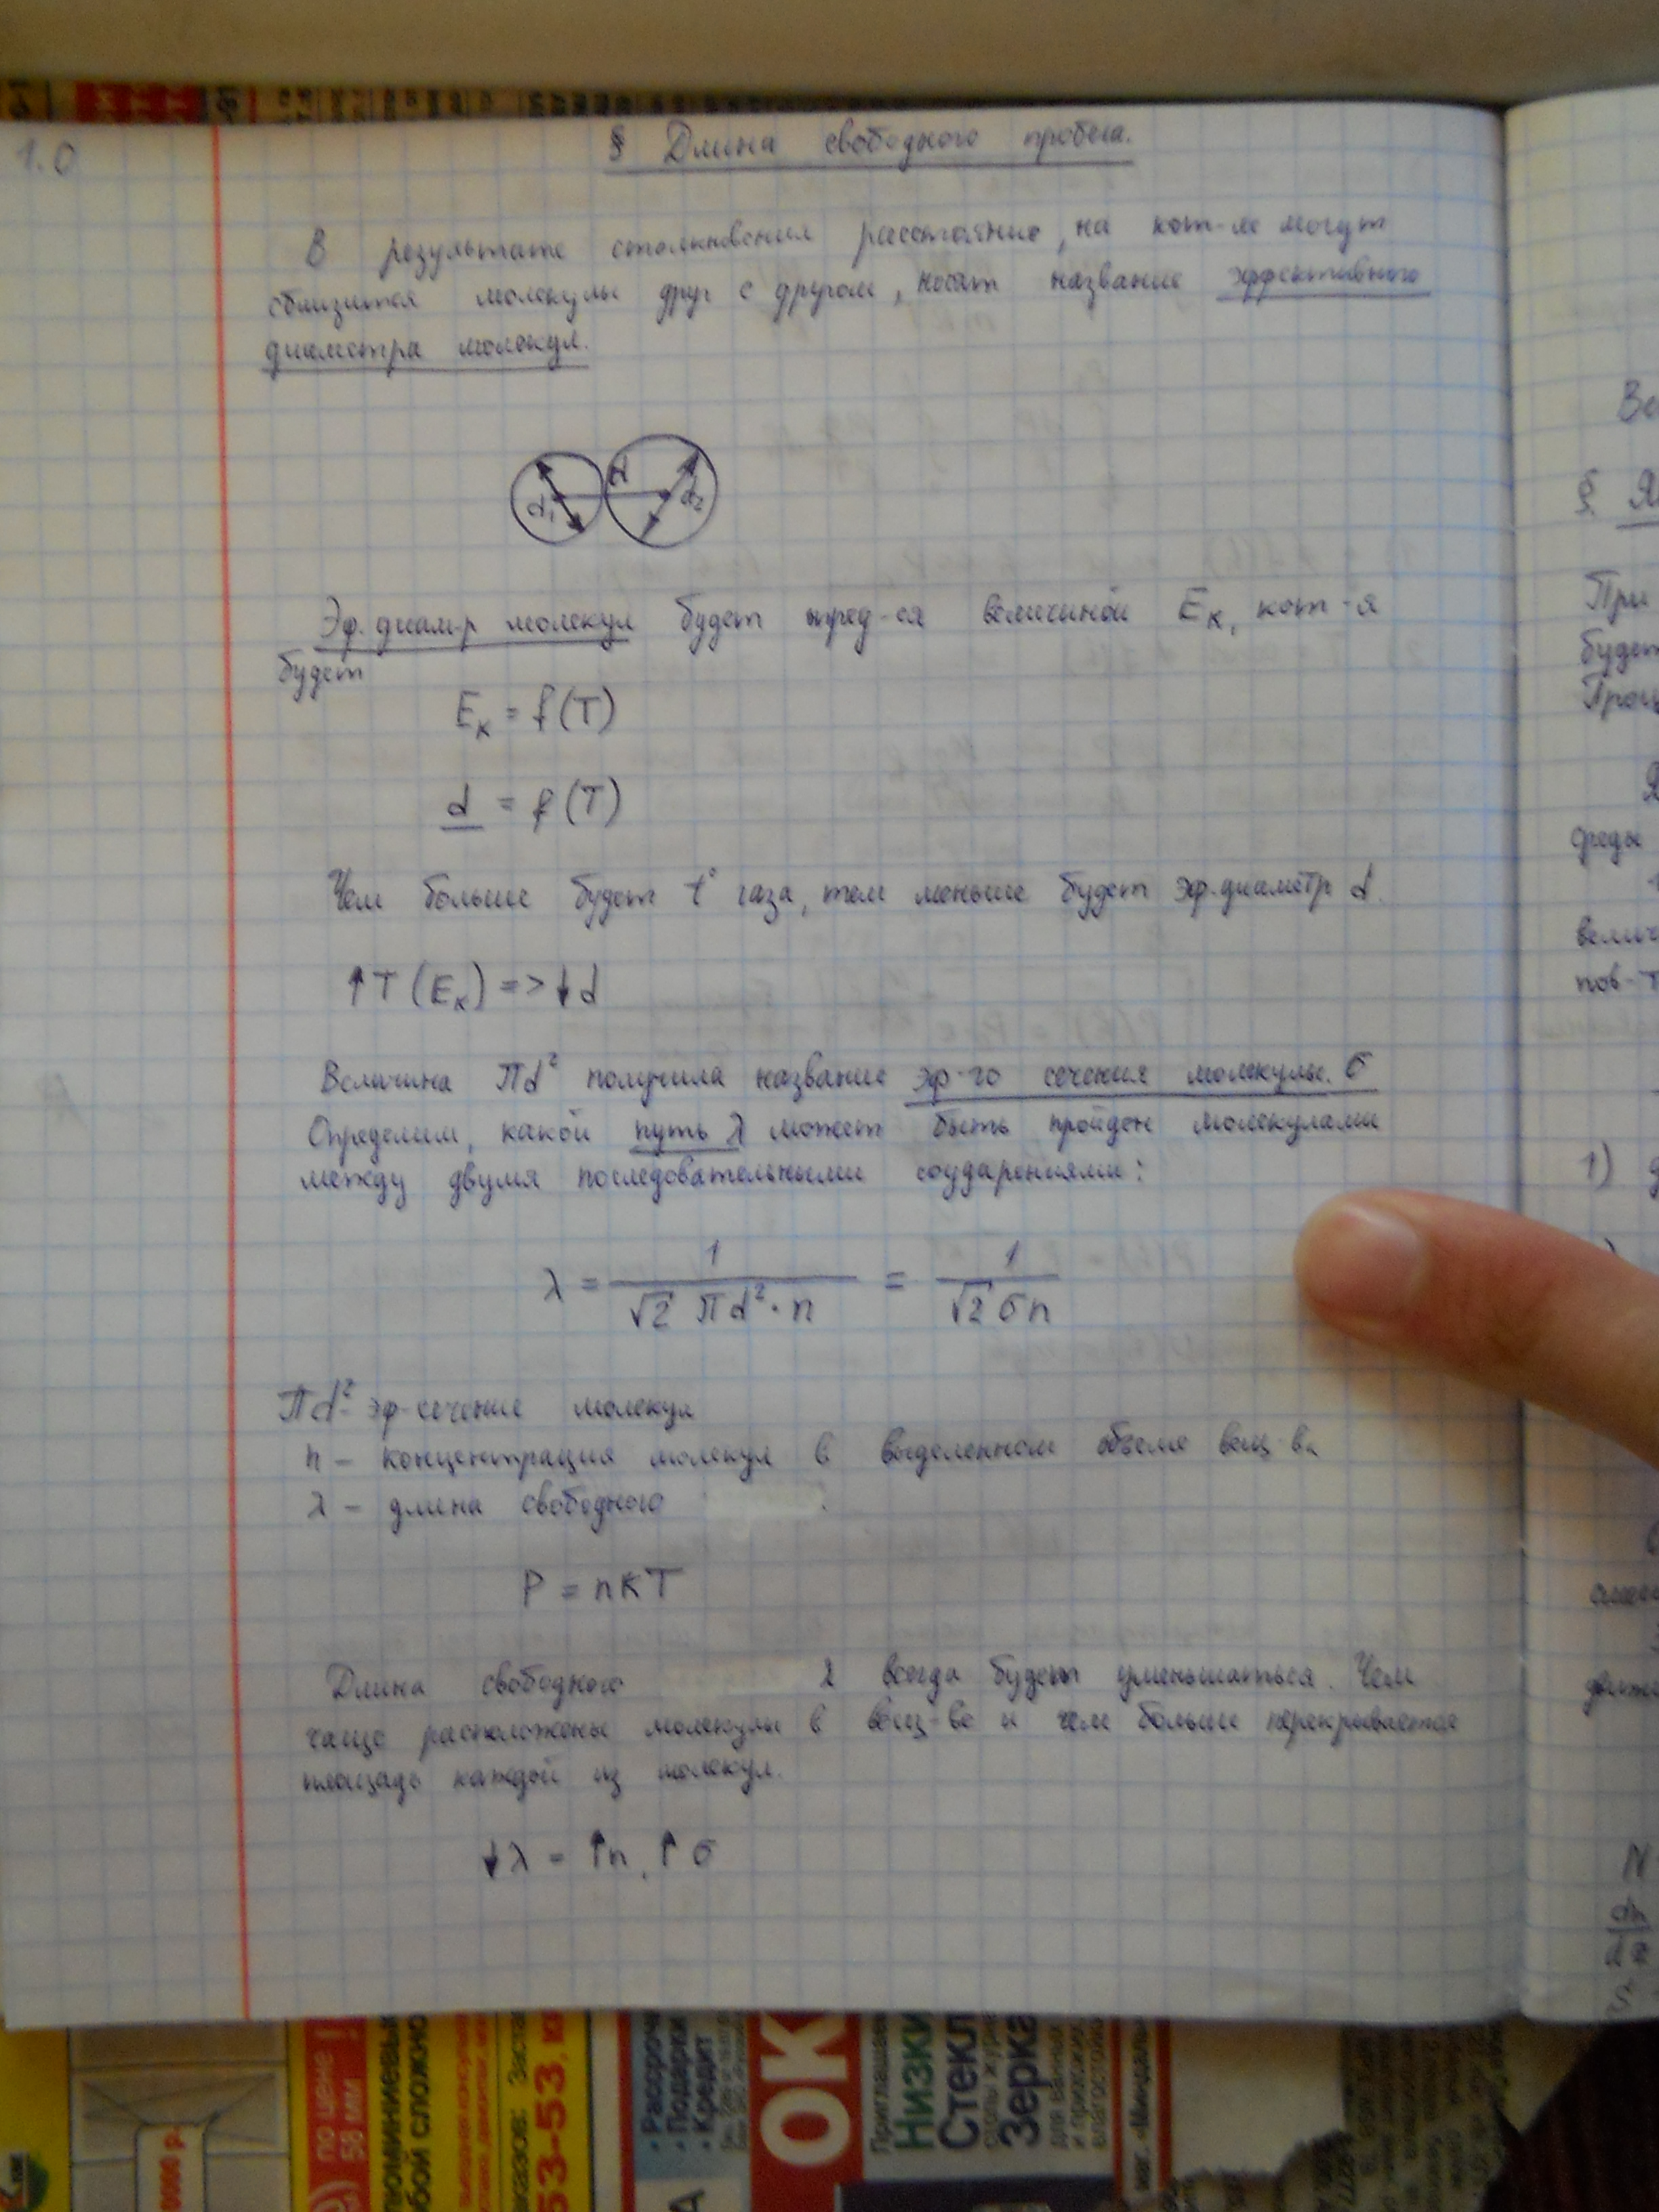 1.0
§ Длина свободного пробега.
В результате столкновения расстояние, на кот-ле могут
сблизится молекулы друг с другом, носят название эффективного
диаметра молекул.
d
d₁ d₂
Эф. диам-р молекул будет опред-ся величиной Eк, кот-я
будет
Eк = f(T)
d = f(T)
Чем больше будет t° газа, тем меньше будет эф. диаметр d.
↑T (Eк) => ↓d
Величина Πd² получила название эф-го сечения молекулы. σ
Определим, какой путь λ может быть пройден молекулами
между двумя последовательными соударениями:
λ = 1 / (√2 Πd² · n) = 1 / (√2 σn)
Πd² - эф-сечение молекул
n – концентрация молекул в выделенном объеме вещ-ва
λ – длина свободного
P = nKT
Длина свободного λ всегда будет уменьшаться. Чем
чаще расположены молекулы в вещ-ве и чем больше перекрывается
площадь каждой из молекул.
↓λ = ↑n, ↑σ
§. Я
При
будет
среды
велич
пов-т
1)
N
dn
dx
по цене
58 мм
юминиевы
бой сложно
53-53,
Рассроч
Подарки
Кредит
ОК
Приглашае
Низки
Стекл
Зерка
для ванных
и прихожих
благостойк
маг. «Миндаль